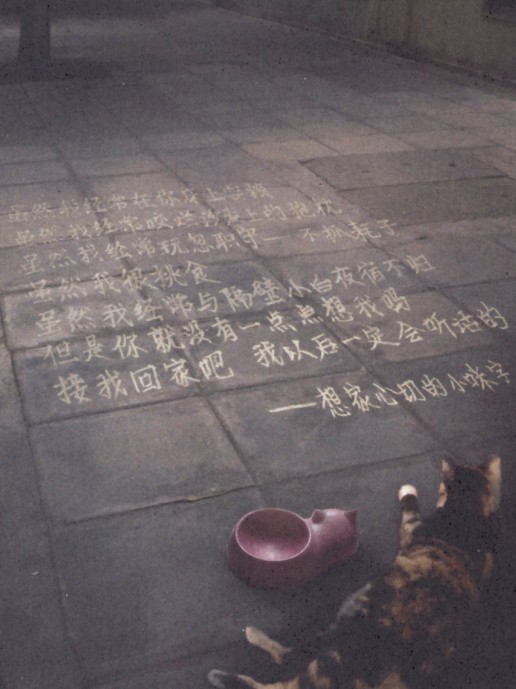 虽然我经常在你床上
虽然我经常咬烂沙发上的抱枕
虽然我经常玩忽职守——不抓耗子
虽然我很挑食
虽然我经常与隔壁小白夜宿不归
但是你就没有一点点想我吗
接我回家吧 我以后一定会听话的
——想家心切的小咪字